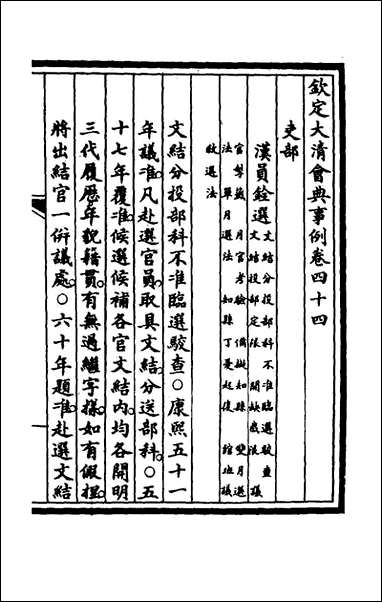 欽定大清會典事例卷四十四
吏部
漢員銓選 文結分投部科不准臨選駁查
文結投部定限 開缺截限 議
官掣籤 月官考驗 備擬知縣 雙月選
法 單月選法 知縣丁憂起復 館班議
敘選法
文結分投部科不准臨選駁查○康熙五十一
年議准。凡赴選官員。取具文結。分送部科。○五
十七年覆准。候選候補各官文結內。均各開明
三代履歷。年貌籍貫。有無過繼字樣。如有假揑。
將出結官一併議處。○六十年題准。赴選文結